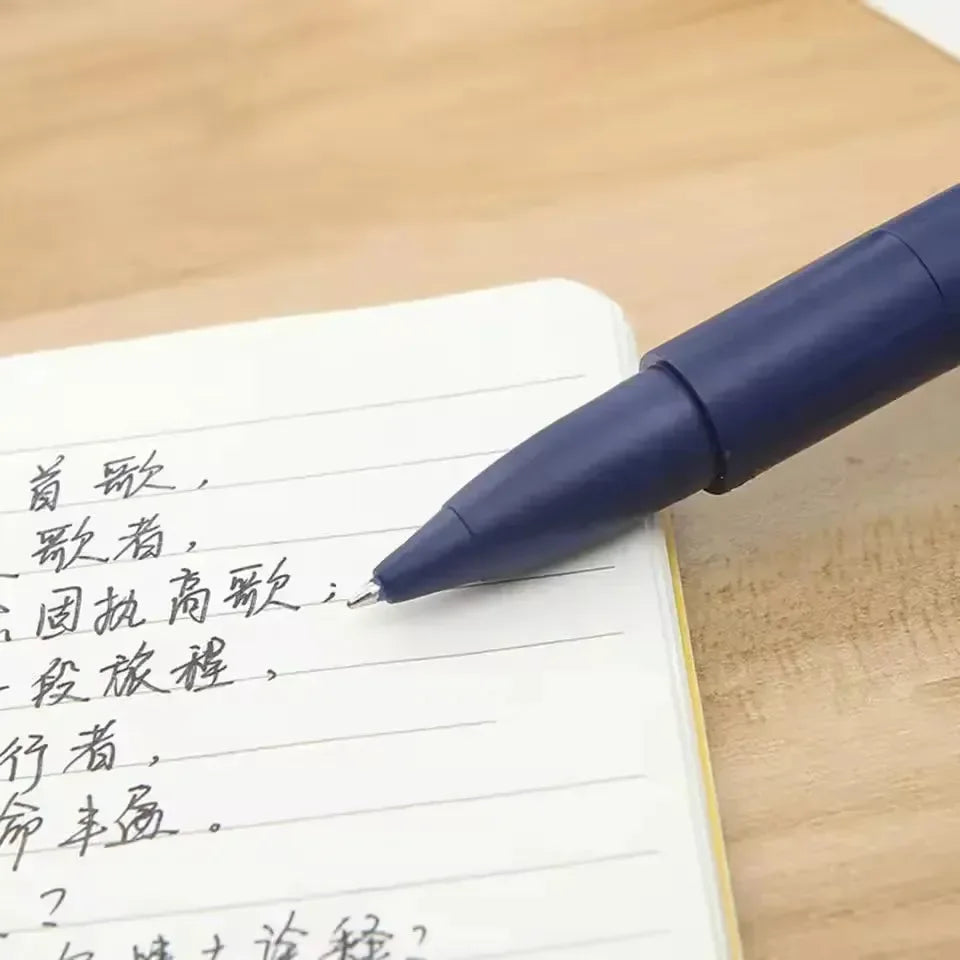 首歌，
歌者，
固执高歌；
一段旅程，
行者，
命丰盈。
？
诠释？